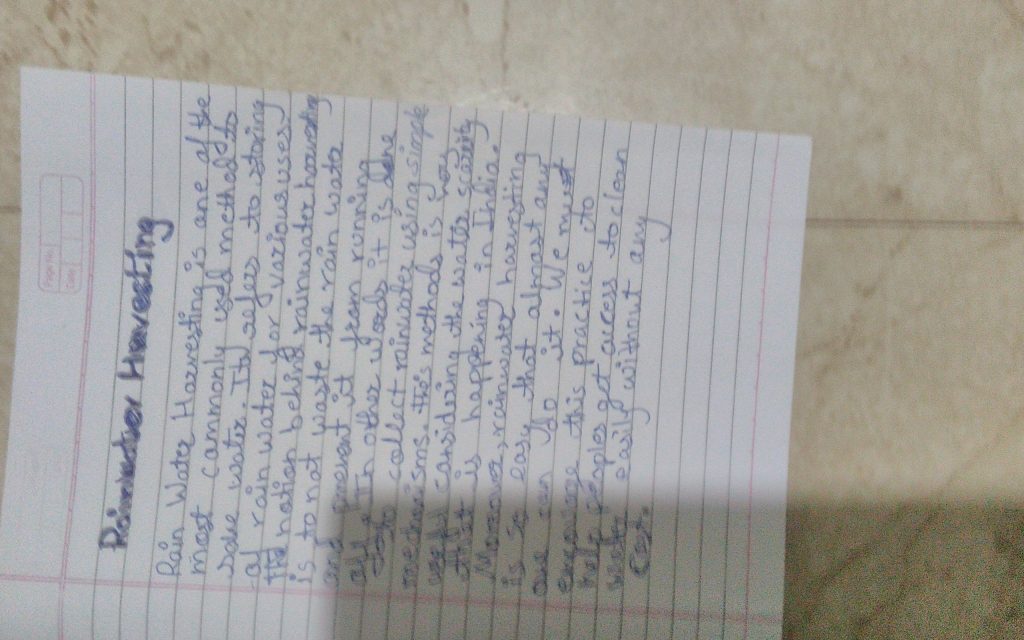 Rainwater Harvesting
Rain Water Harvesting is one of the
most commonly used method to
save water. It refers to storing
of rain water for various uses.
The notion behind rainwater harvesting
is to not waste the rain water
and prevent it from running
off. In other words, it is done
to collect rainwater using simple
mechanisms. this methods is very
useful considering the water scarcity
that is happening in India.
Moreover, rainwater harvesting
is so easy that almost any
one can do it. We must
encourage this practice to
help peoples get access to clean
water easily without any
Cost.
Page No.
Date